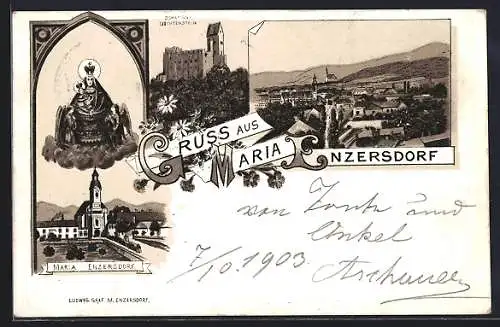 LIECHTENSTEIN
GRUSS AUS
MARIA ENZERSDORF
von Tante und
Onkel
7/10. 1903
Aschauer
MARIA ENZERSDORF.
LUDWIG GRAF M. ENZERSDORF.